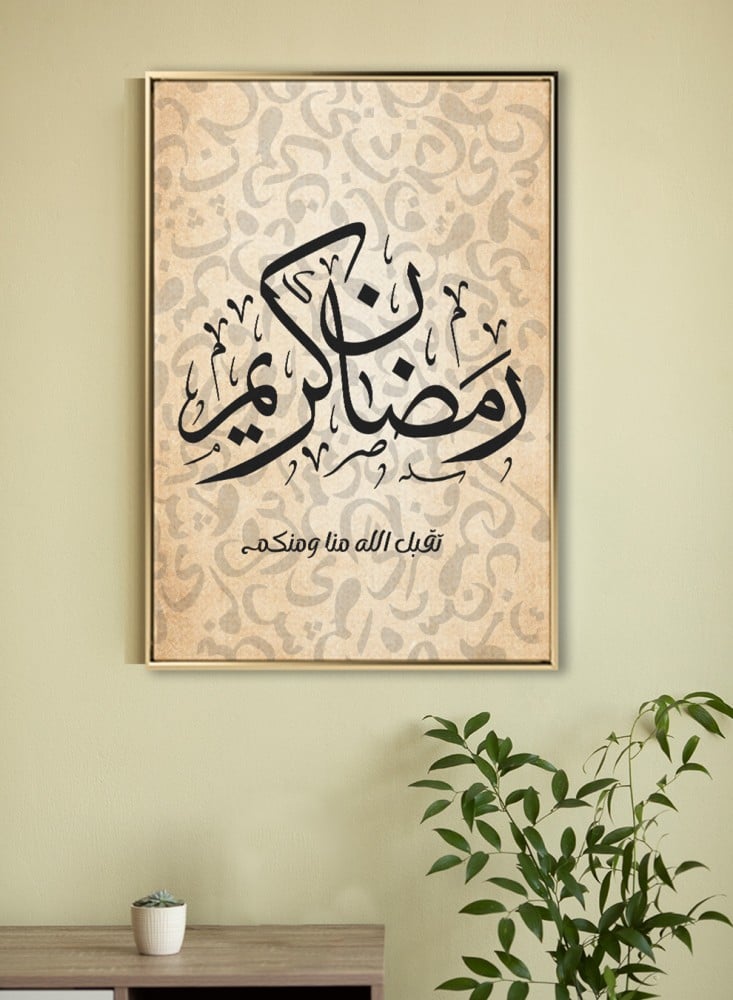 رمضان كريم
تقبل الله منا ومنكم